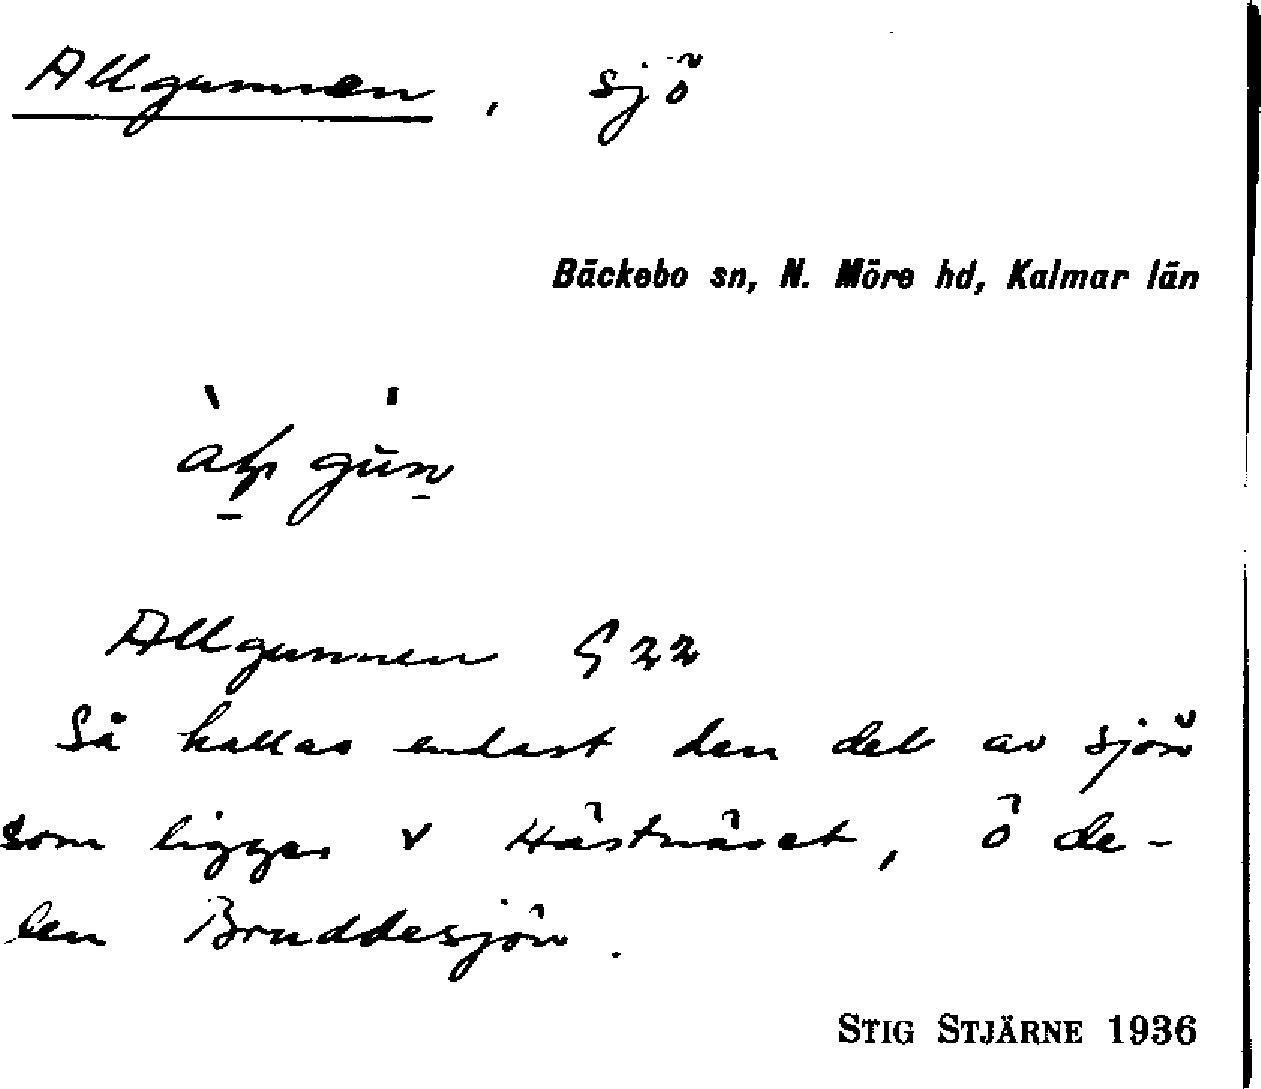 Allgunnen, sjö
Bäckebo sn, N. Möre hd, Kalmar län
Allgunnen G 22
Så kallas endast den del av sjön
som ligger v Hästnäset, ö de-
len Bruddesjön.
STIG STJÄRNE 1936